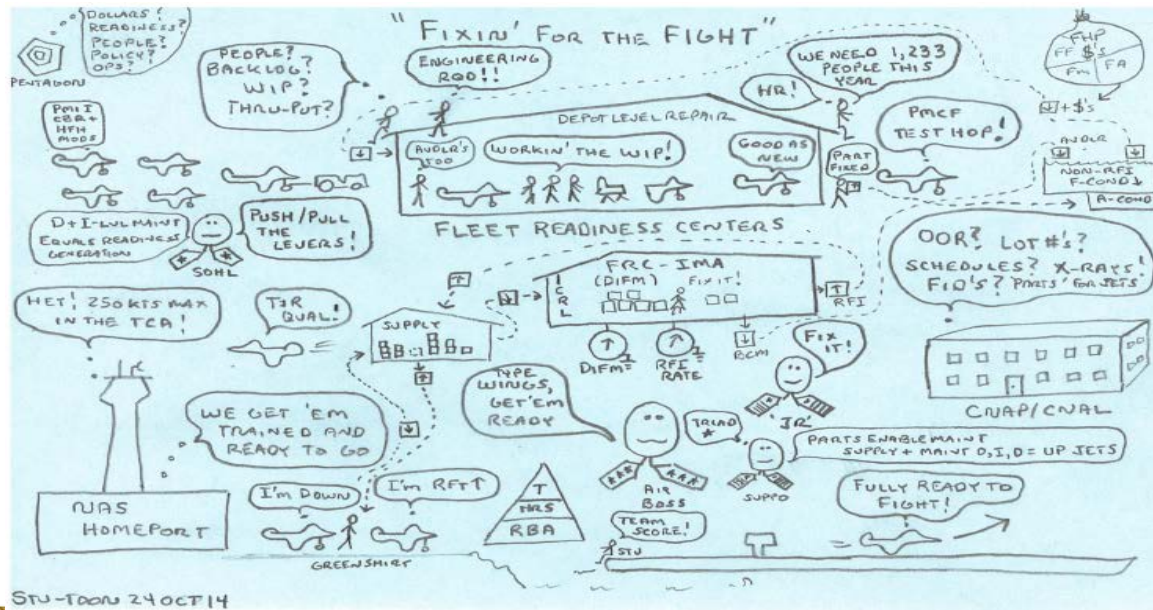 "FIXIN' FOR THE FIGHT"
DOLLARS?
READINESS?
PEOPLE?
POLICY?
OPS?
PENTAGON
PEOPLE?
BACKLOG?
WIP?
THRU-PUT?
ENGINEERING
ROD!!
WE NEED 1,233
PEOPLE THIS
YEAR
HR!
FHP
FF $'s
FM
FA
+$'s
PMI I
CBR+
HFH
MODS
DEPOT LEVEL REPAIR
AVDLR'S
TOO
WORKIN' THE WIP!
GOOD AS
NEW
PART
FIXED
PMCF
TEST HOP!
AVDLR
NON-RFI
F-COND
A-COND
D+I-LVL MAINT
EQUALS READINESS
GENERATION
SOHL
PUSH/PULL
THE
LEVERS!
FLEET READINESS CENTERS
OOR? LOT #'s?
SCHEDULES? X-RAYS!
FID'S? PARTS' FOR JETS
HEY! 250 KTS MAX
IN THE TCA!
T&R
QUAL!
SUPPLY
FRC-IMA
(DIFM) FIX IT!
ICRL
RFI
DIFM
RFI
RATE
BCM
FIX
IT!
'JR'
CNAP/CNAL
WE GET 'EM
TRAINED AND
READY TO GO
TYPE
WINGS,
GET 'EM
READY
TRIAD
AIR
BOSS
SUPPO
PARTS ENABLE MAINT
SUPPLY + MAINT O, I, D = UP JETS
NAS
HOMEPORT
I'M DOWN
I'M RFT
GREENSHIRT
T
HRS
RBA
TEAM
SCORE!
STU
FULLY READY TO
FIGHT!
STU-TOON 24 OCT 14